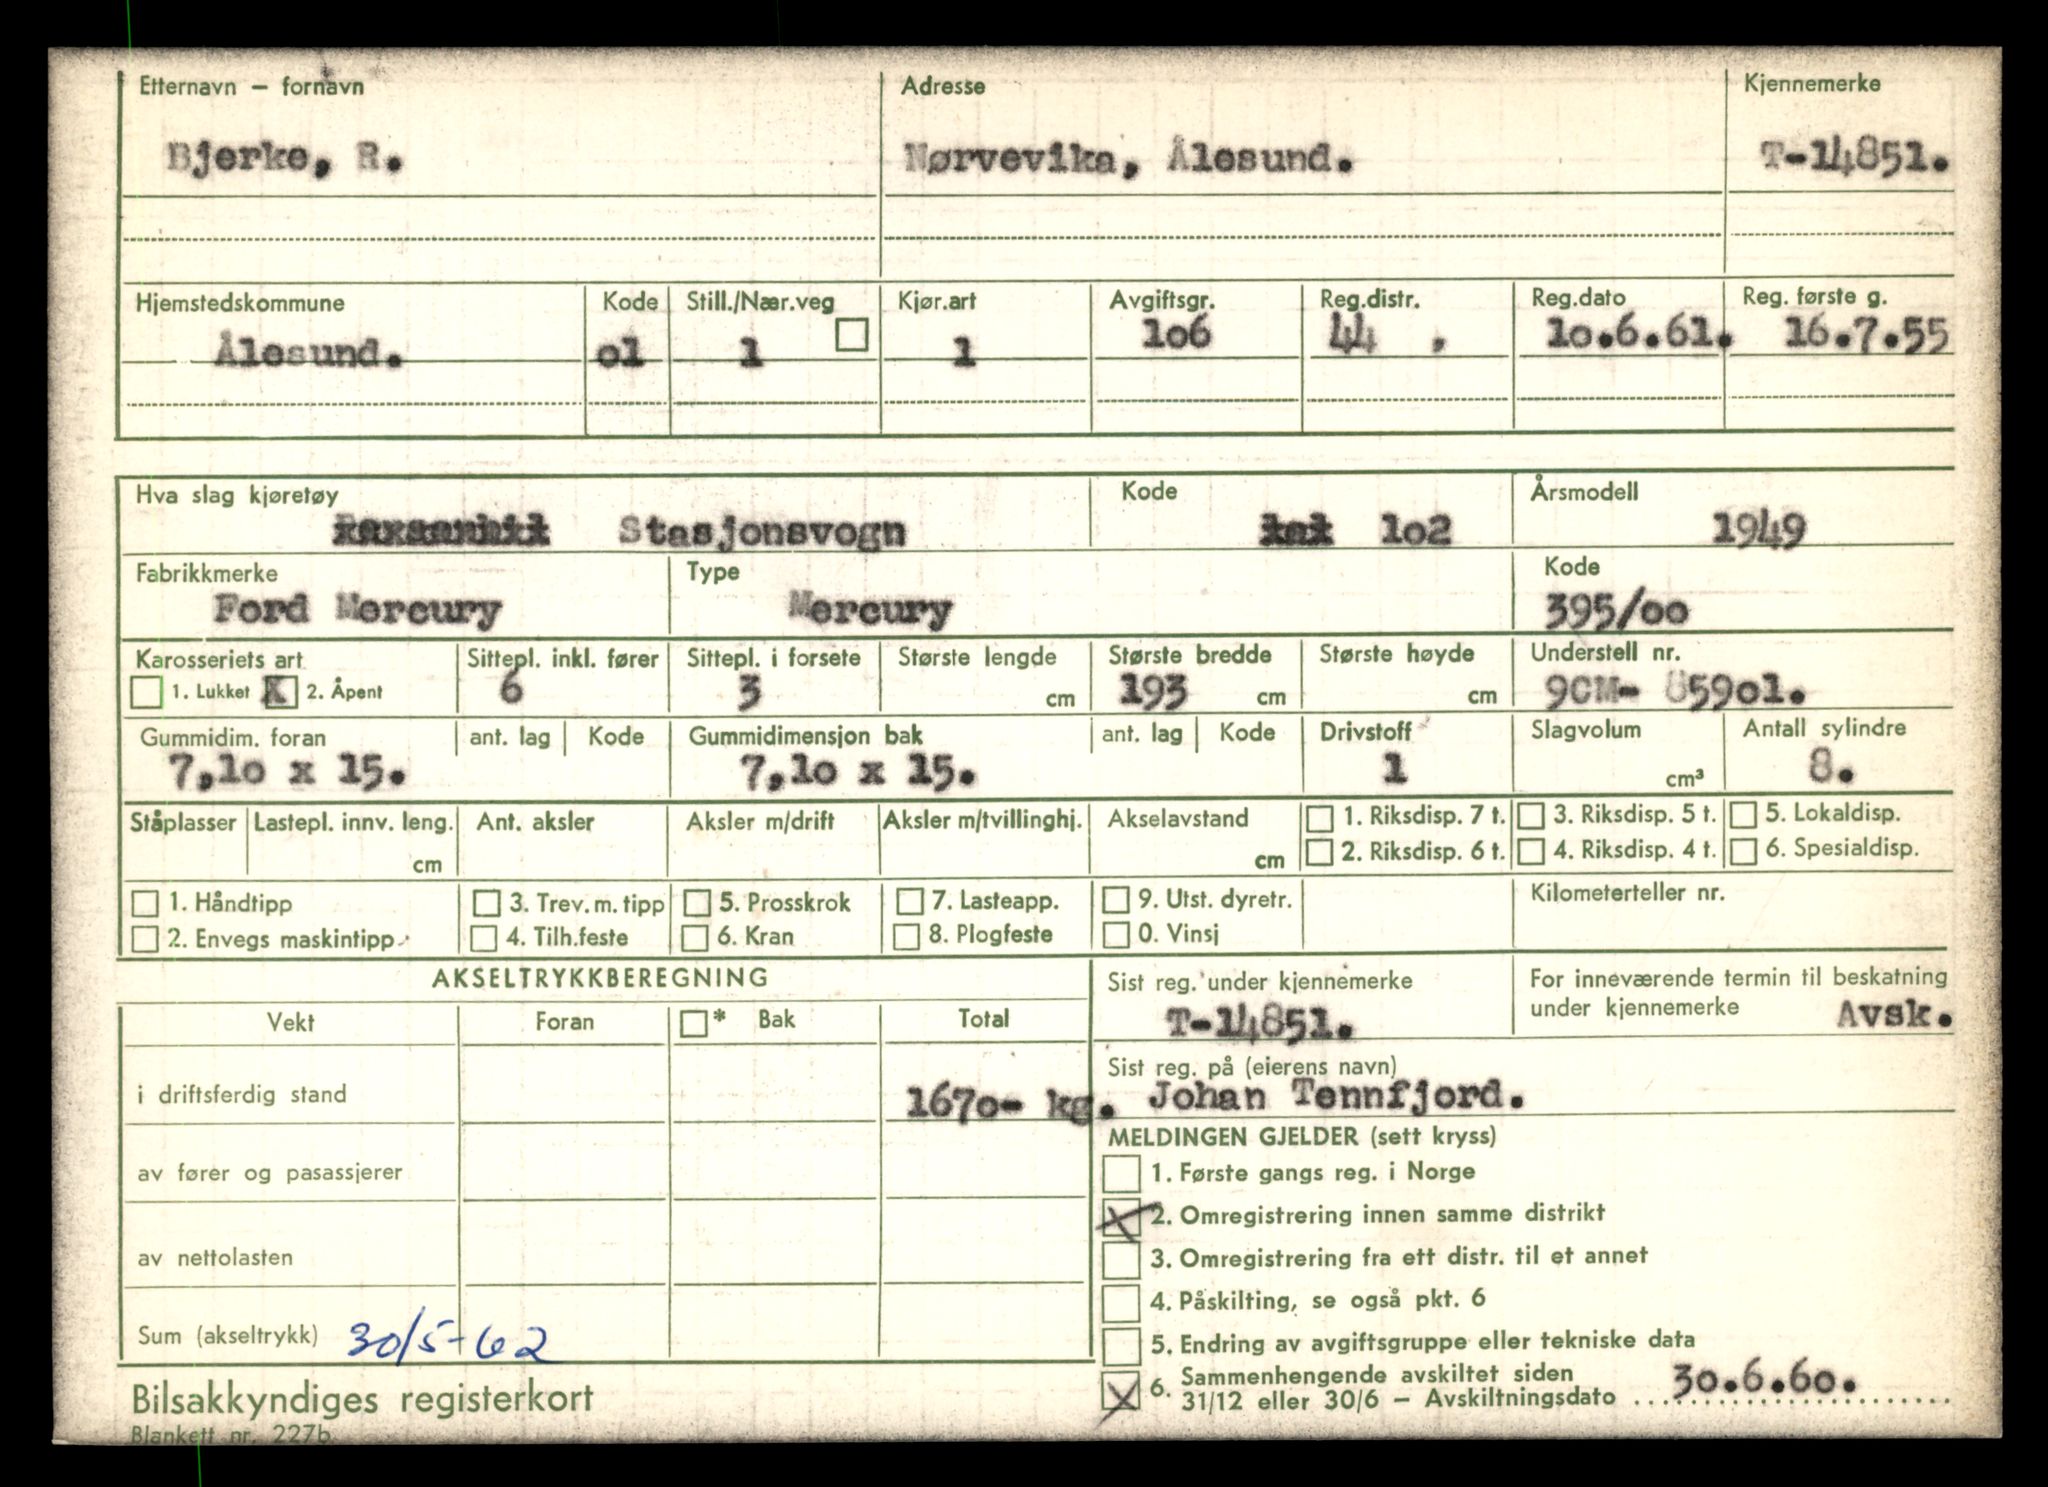 Etternavn – fornavn Adresse Kjennemerke
Bjerke, R. Nørvevika, Ålesund. T-14851.
Hjemstedskommune Kode Still./Nær.veg Kjør.art Avgiftsgr. Reg.distr. Reg.dato Reg. første g.
Ålesund. ol 1 1 106 44 . 10.6.61. 16.7.55
Hva slag kjøretøy Kode Årsmodell
Stasjonsvogn lo2 1949
Fabrikkmerke Type Kode
Ford Mercury Mercury 395/oo
Karosseriets art Sittepl. inkl. fører Sittepl. i forsete Største lengde Største bredde Største høyde Understell nr.
1. Lukket X 2. Åpent 6 3 cm 193 cm cm 9CM- 859ol.
Gummidim. foran ant. lag Kode Gummidimensjon bak ant. lag Kode Drivstoff Slagvolum Antall sylindre
7,lo x 15. 7,lo x 15. 1 cm³ 8.
Ståplasser Lastepl. innv. leng. Ant. aksler Aksler m/drift Aksler m/tvillinghj. Akselavstand 1. Riksdisp. 7 t. 3. Riksdisp. 5 t. 5. Lokaldisp.
cm cm 2. Riksdisp. 6 t. 4. Riksdisp. 4 t. 6. Spesialdisp.
1. Håndtipp 3. Trev. m. tipp 5. Prosskrok 7. Lasteapp. 9. Utst. dyretr. Kilometerteller nr.
2. Envegs maskintipp 4. Tilh.feste 6. Kran 8. Plogfeste 0. Vinsj
AKSELTRYKKBEREGNING Sist reg. under kjennemerke For inneværende termin til beskatning
Vekt Foran * Bak Total T-14851. under kjennemerke Avsk.
Sist reg. på (eierens navn)
i driftsferdig stand 1670- kg. Johan Tennfjord.
MELDINGEN GJELDER (sett kryss)
av fører og pasassjerer 1. Første gangs reg. i Norge
X 2. Omregistrering innen samme distrikt
av nettolasten 3. Omregistrering fra ett distr. til et annet
4. Påskilting, se også pkt. 6
Sum (akseltrykk) 30/5-62 5. Endring av avgiftsgruppe eller tekniske data
X 6. Sammenhengende avskiltet siden
31/12 eller 30/6 – Avskiltningsdato 30.6.60.
Bilsakkyndiges registerkort
Blankett nr. 227b